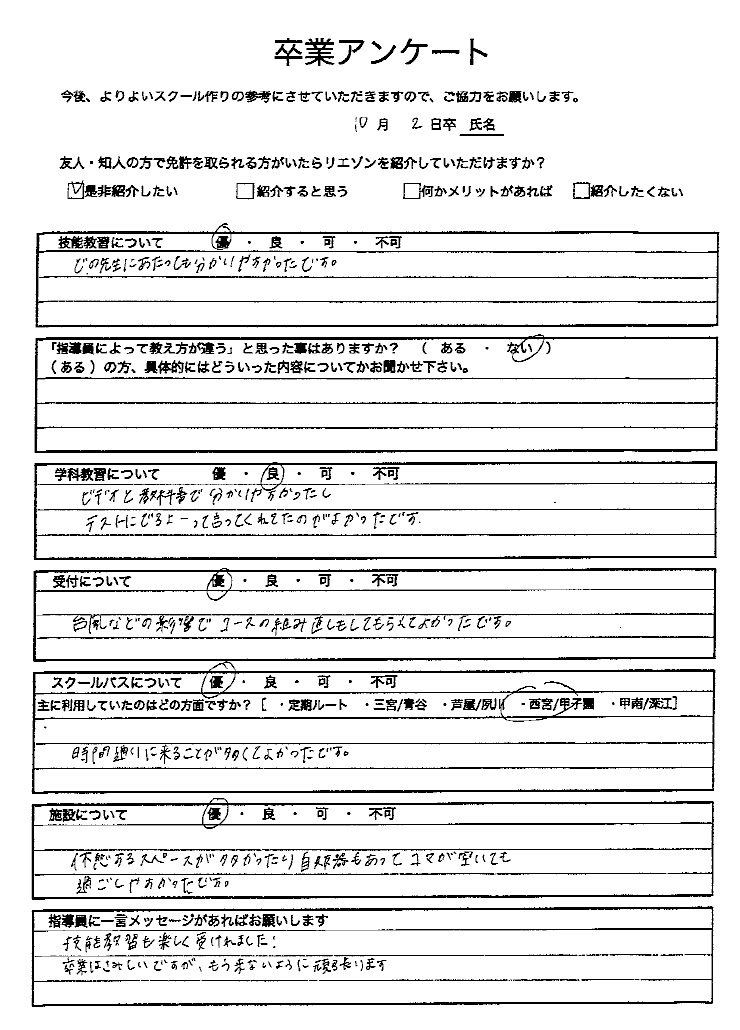 卒業アンケート
今後、よりよいスクール作りの参考にさせていただきますので、ご協力をお願いします。
10月 2日卒 氏名
友人・知人の方で免許を取られる方がいたらリエゾンを紹介していただけますか？
是非紹介したい 紹介すると思う 何かメリットがあれば 紹介したくない
技能教習について 優 ・ 良 ・ 可 ・ 不可
どの先生にあたっても分かりやすかったです。
「指導員によって教え方が違う」と思った事はありますか？ （ ある ・ ない ）
（ある）の方、具体的にはどういった内容についてかお聞かせ下さい。
学科教習について 優 ・ 良 ・ 可 ・ 不可
ビデオと教科書で分かりやすかったし
テストにでるよーって言ってくれてたのがよかったです.
受付について 優 ・ 良 ・ 可 ・ 不可
台風などの影響でコースの組み直しもしてもらえてよかったです。
スクールバスについて 優 ・ 良 ・ 可 ・ 不可
主に利用していたのはどの方面ですか？［ ・定期ルート ・三宮/青谷 ・芦屋/夙川 ・西宮/甲子園 ・甲南/深江］
時間通りに来ることが多くてよかったです。
施設について 優 ・ 良 ・ 可 ・ 不可
休憩するスペースが多かったり自販器もあってコマが空いても
過ごしやすかったです。
指導員に一言メッセージがあればお願いします
技能教習も楽しく受けれました！
卒業はさみしいですが、もう来ないように頑張ります